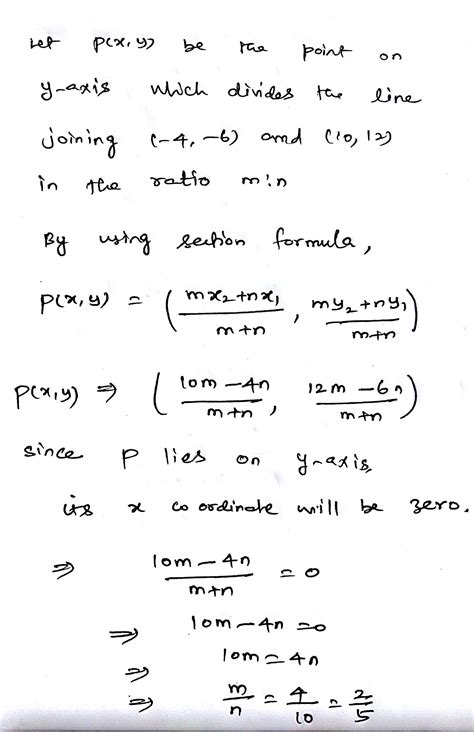 Let P(x,y) be the point on
y-axis which divides the line
joining (-4, -6) and (10, 12)
in the ratio m:n
By using section formula,
P(x,y) = ( (mx₂+nx₁)/(m+n) , (my₂+ny₁)/(m+n) )
P(x,y) ⇒ ( (10m-4n)/(m+n) , (12m-6n)/(m+n) )
since P lies on y-axis,
its x coordinate will be zero.
⇒ (10m-4n)/(m+n) = 0
⇒ 10m-4n = 0
⇒ 10m = 4n
⇒ m/n = 4/10 = 2/5